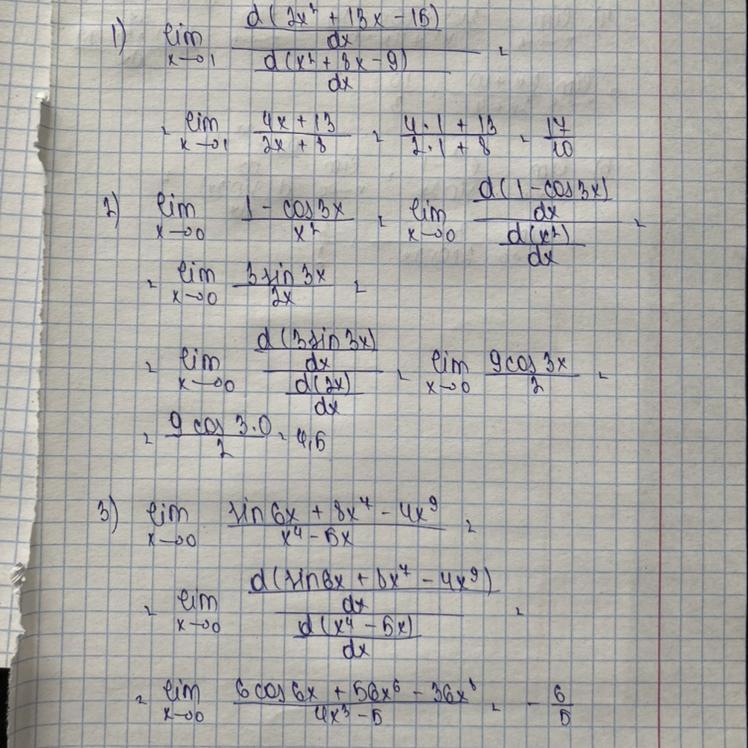 1) lim x→01 (d(2x² + 13x - 15)/dx) / (d(x² + 8x - 9)/dx) =
= lim x→01 (4x + 13)/(2x + 8) = (4·1 + 13)/(2·1 + 8) = 17/10
2) lim x→00 (1 - cos3x)/x² = lim x→00 (d(1 - cos3x)/dx) / (d(x²)/dx) =
= lim x→00 3sin3x/2x =
= lim x→00 (d(3sin3x)/dx) / (d(2x)/dx) = lim x→00 9cos3x/2 =
= 9cos3·0/2 = 4,5
3) lim x→00 (sin6x + 8x⁷ - 4x⁹)/(x⁴ - 5x) =
= lim x→00 (d(sin6x + 8x⁷ - 4x⁹)/dx) / (d(x⁴ - 5x)/dx) =
= lim x→00 (6cos6x + 56x⁶ - 36x⁸)/(4x³ - 5) = - 6/5